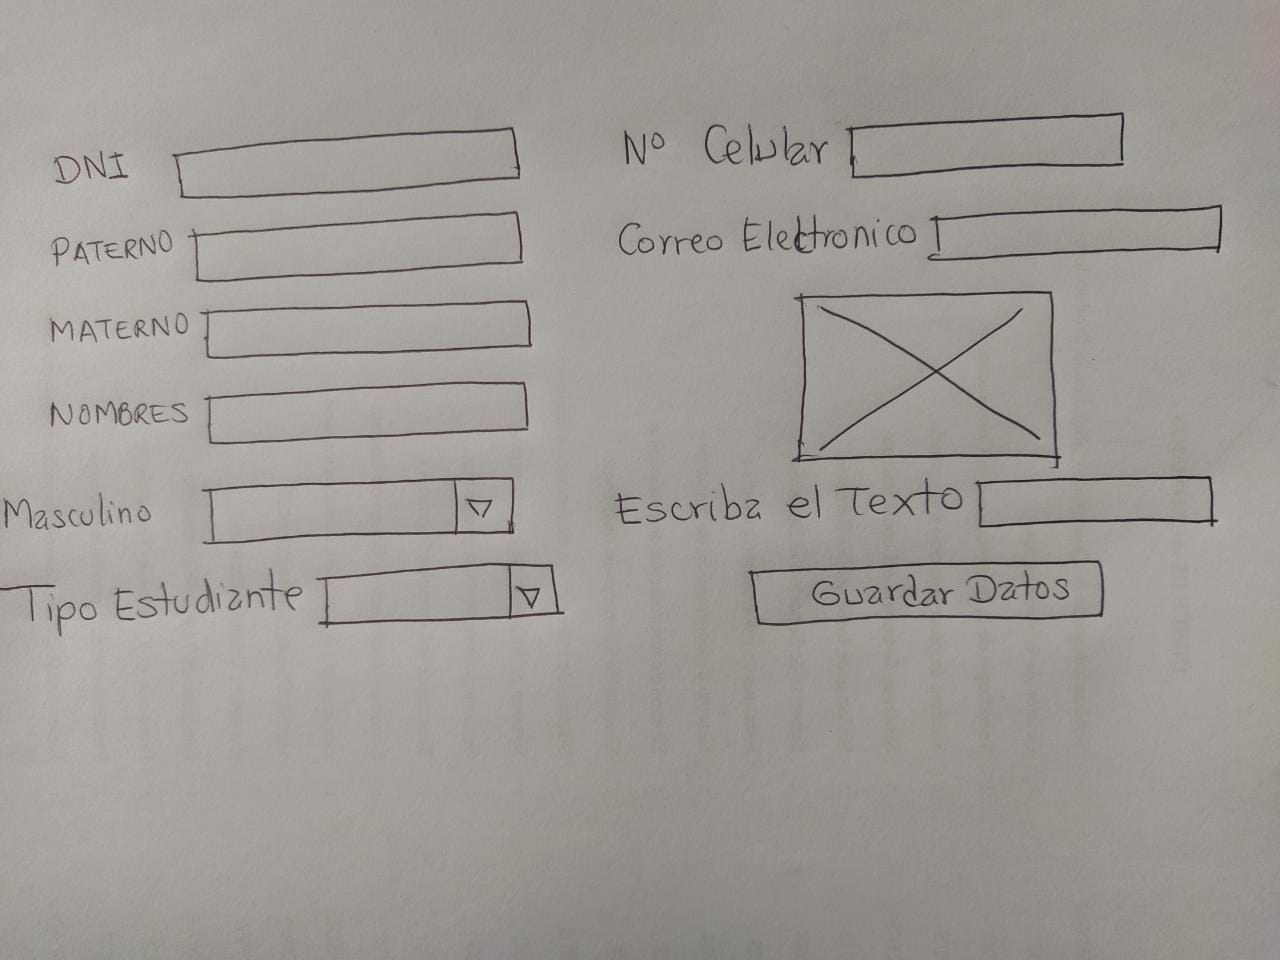 DNI
PATERNO
MATERNO
NOMBRES
Masculino
Tipo Estudiante
Nº Celular
Correo Electronico
Escriba el Texto
Guardar Datos